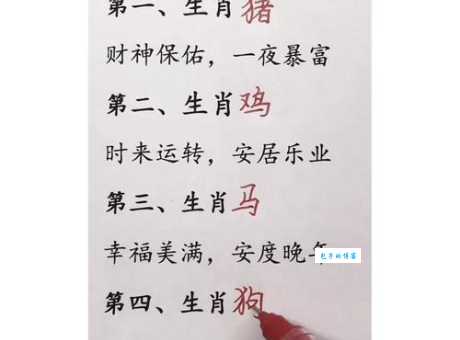 第一、生肖猪
财神保佑，一夜暴富
第二、生肖鸡
时来运转，安居乐业
第三、生肖马
幸福美满，安度晚年
包子的博客
第四、生肖狗